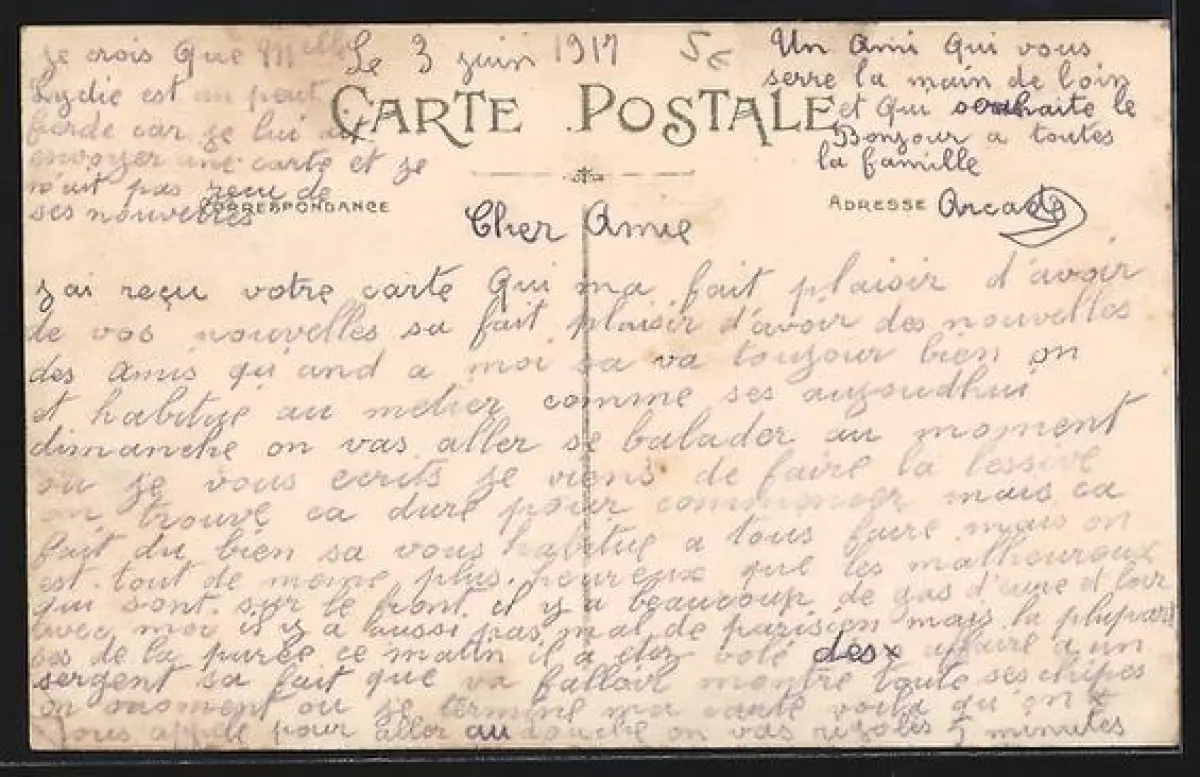 Le 3 juin 1917
5c
CARTE POSTALE
CORRESPONDANCE
ADRESSE
Cher Amie
J'ai reçu votre carte Qui ma fait plaisir d'avoir
de vos nouvelles sa fait plaisir d'avoir des nouvelles
des amis qu and a moi sa va toujour bien on
et habitue au metier comme ses aujoudhui
dimanche on vas aller se balader au moment
ou je vous ecrits je viens de faire la lessive
on trouve ca dure pour commencer mais ca
fait du bien sa vous habitue a tous faire mais on
est tout de meme plus heureux que les malheuroux
qui sont sur le front il y a beaucoup de gas d'eure et loir
avec moi il y a aussi pas mal de parisien mais la plupart
ses de la purée ce matin il a etez volé des affaire a un
sergent sa fait que va falloir montre toute ses chipes
on moment ou je termine ma carte voila qu'on
vous appele pour aller au douche on vas rigoles 5 minutes
Un Ami Qui vous
serre la main de loin
et Qui souhaite le
Bonjour a toutes
la famille
Je crois Que Melle
Lydie est
car je lui ai
envoyer une carte et je
n'ait pas reçu de
ses nouvelles